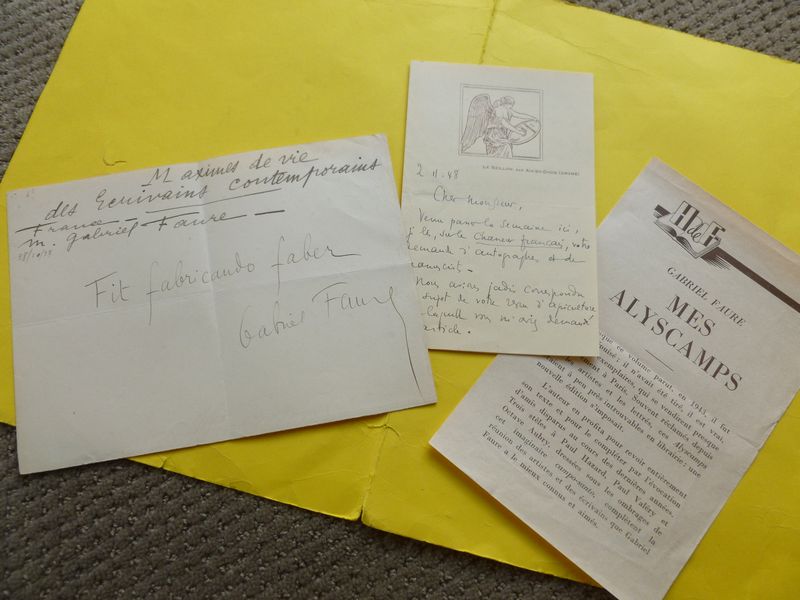 Maximes de vie
des Ecrivains contemporains
France
M. Gabriel Faure
Fit fabricando faber
Gabriel Faure
2.11.48
Cher Monsieur,
Venu passer la semaine ici,
j'ai lu, sur le Chasseur français, votre
demande d'autographes et de
manuscrits.
Nous avions jadis correspondu
au sujet de votre revue d'apiculture
laquelle vous m'aviez demandé
article.
H de F
GABRIEL FAURE
MES
ALYSCAMPS
que ce volume parut, en 1943, il fut
épuisé; il n'avait été tiré, il est vrai,
exemplaires, qui se vendirent presque
à Paris. Souvent réclamés depuis
artistes et les lettrés, ces Alyscamps
à peu près introuvables en librairie: une
nouvelle édition s'imposait.
L'auteur en profita pour revoir entièrement
son texte et pour le compléter par l'évocation
d'amis disparus au cours des dernières années.
Trois stèles à Paul Hazard, Paul Valéry et
Octave Aubry, dressées sous les ombrages de
cet imaginaire campo-santo, complètent la
réunion des artistes et des écrivains que Gabriel
Faure a le mieux connus et aimés.